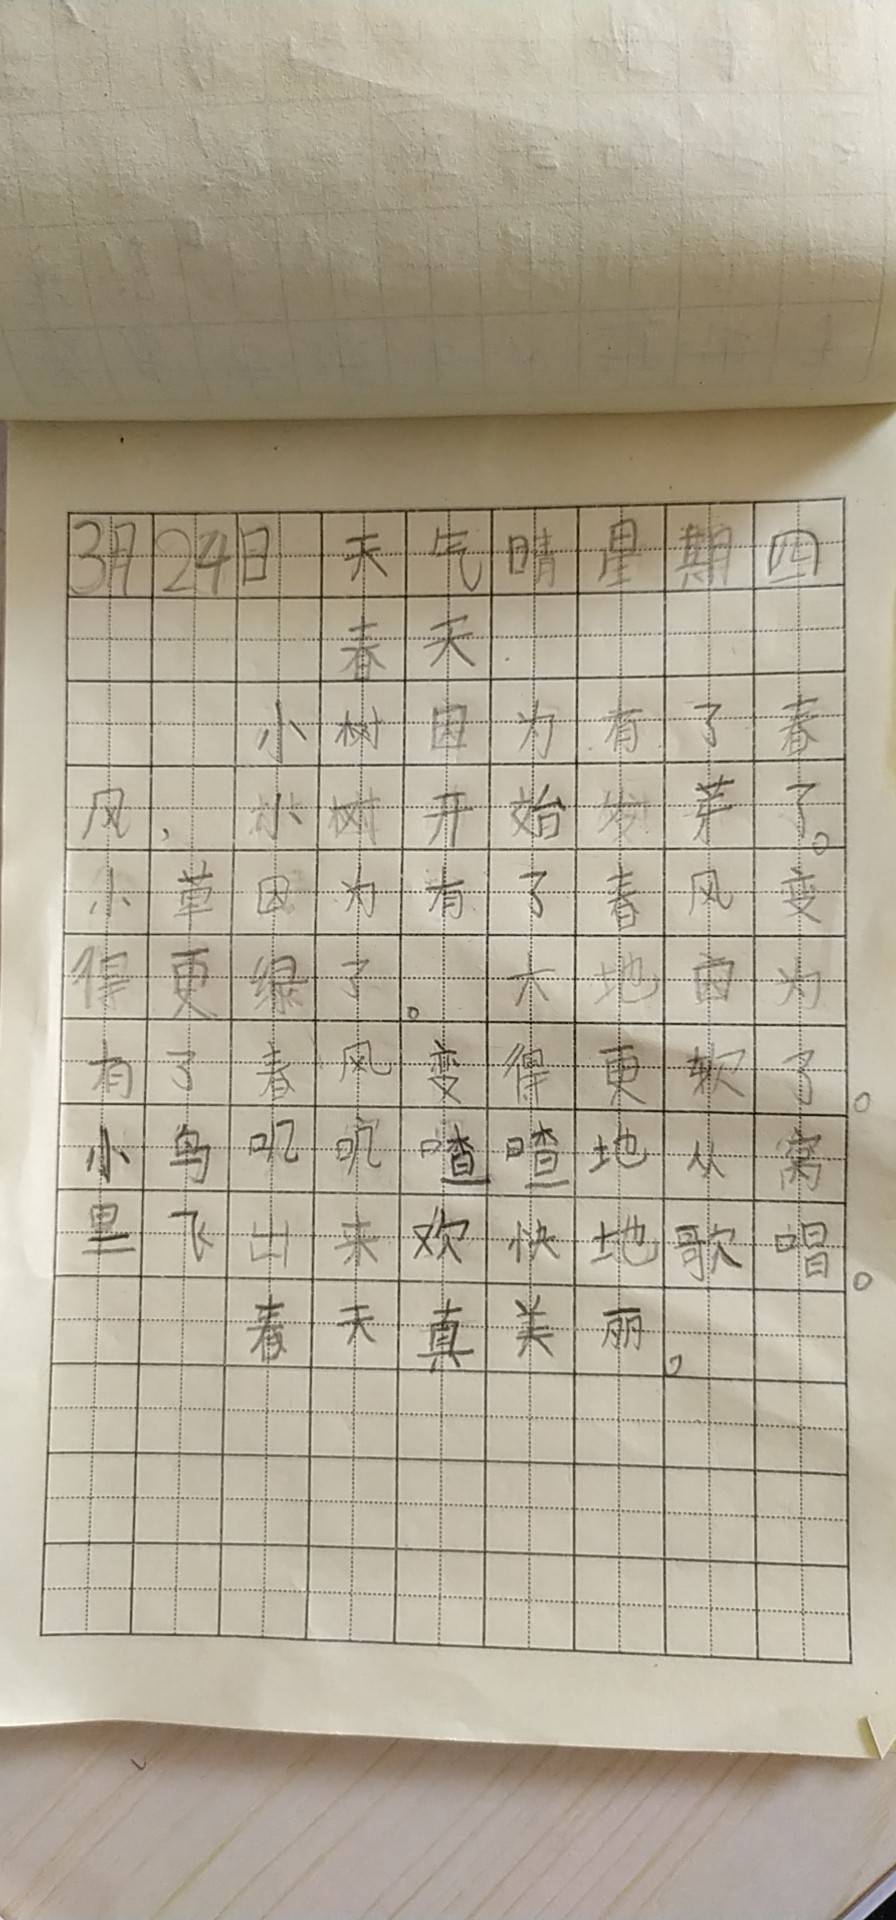 3月24日 天气晴星期四
春天
小树因为有了春
风，小树开始发芽了。
小草因为有了春风变
得更绿了。大地因为
有了春风变得更软了。
小鸟叽叽喳喳地从窝
里飞出来欢快地歌唱。
春天真美丽。